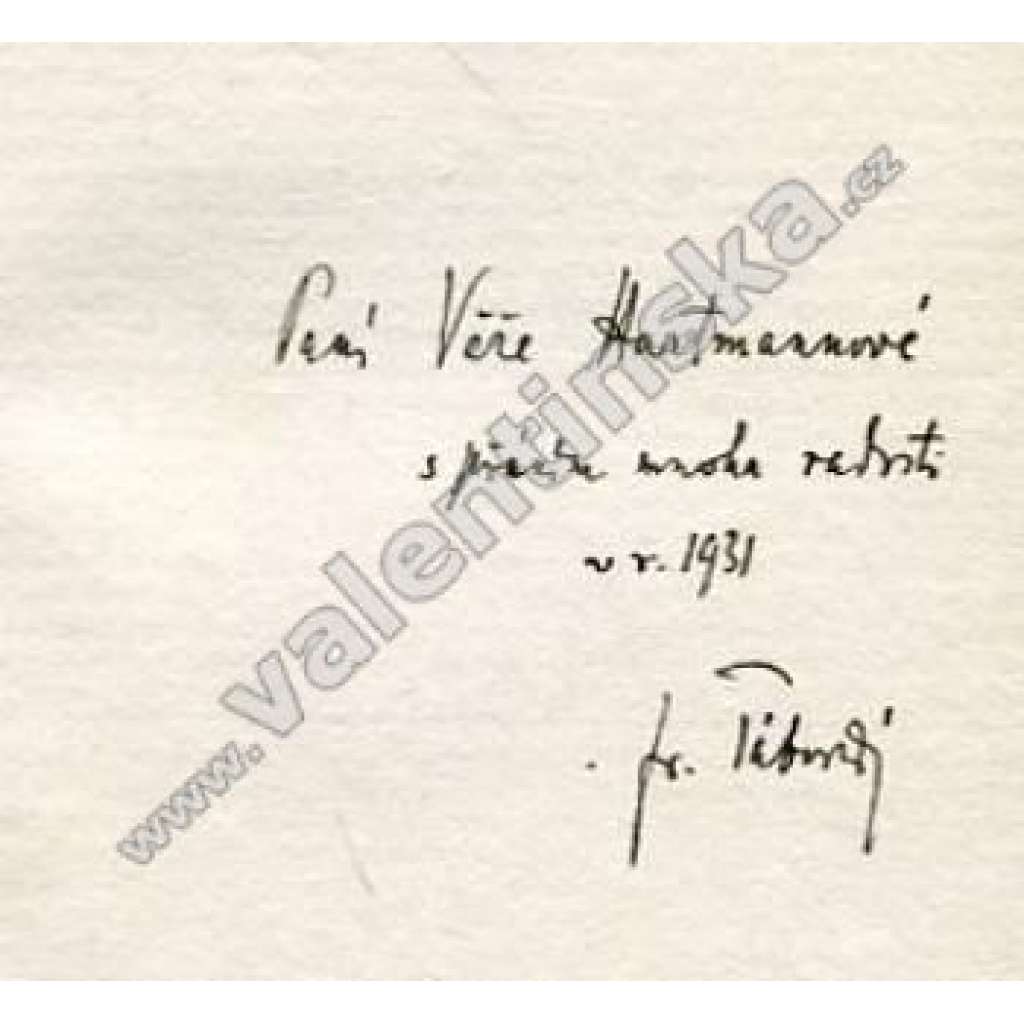 Paní Věře Hartmannové
s přáním mnoha radosti
v r. 1931
Fr. Táborský
www.valentinska.cz